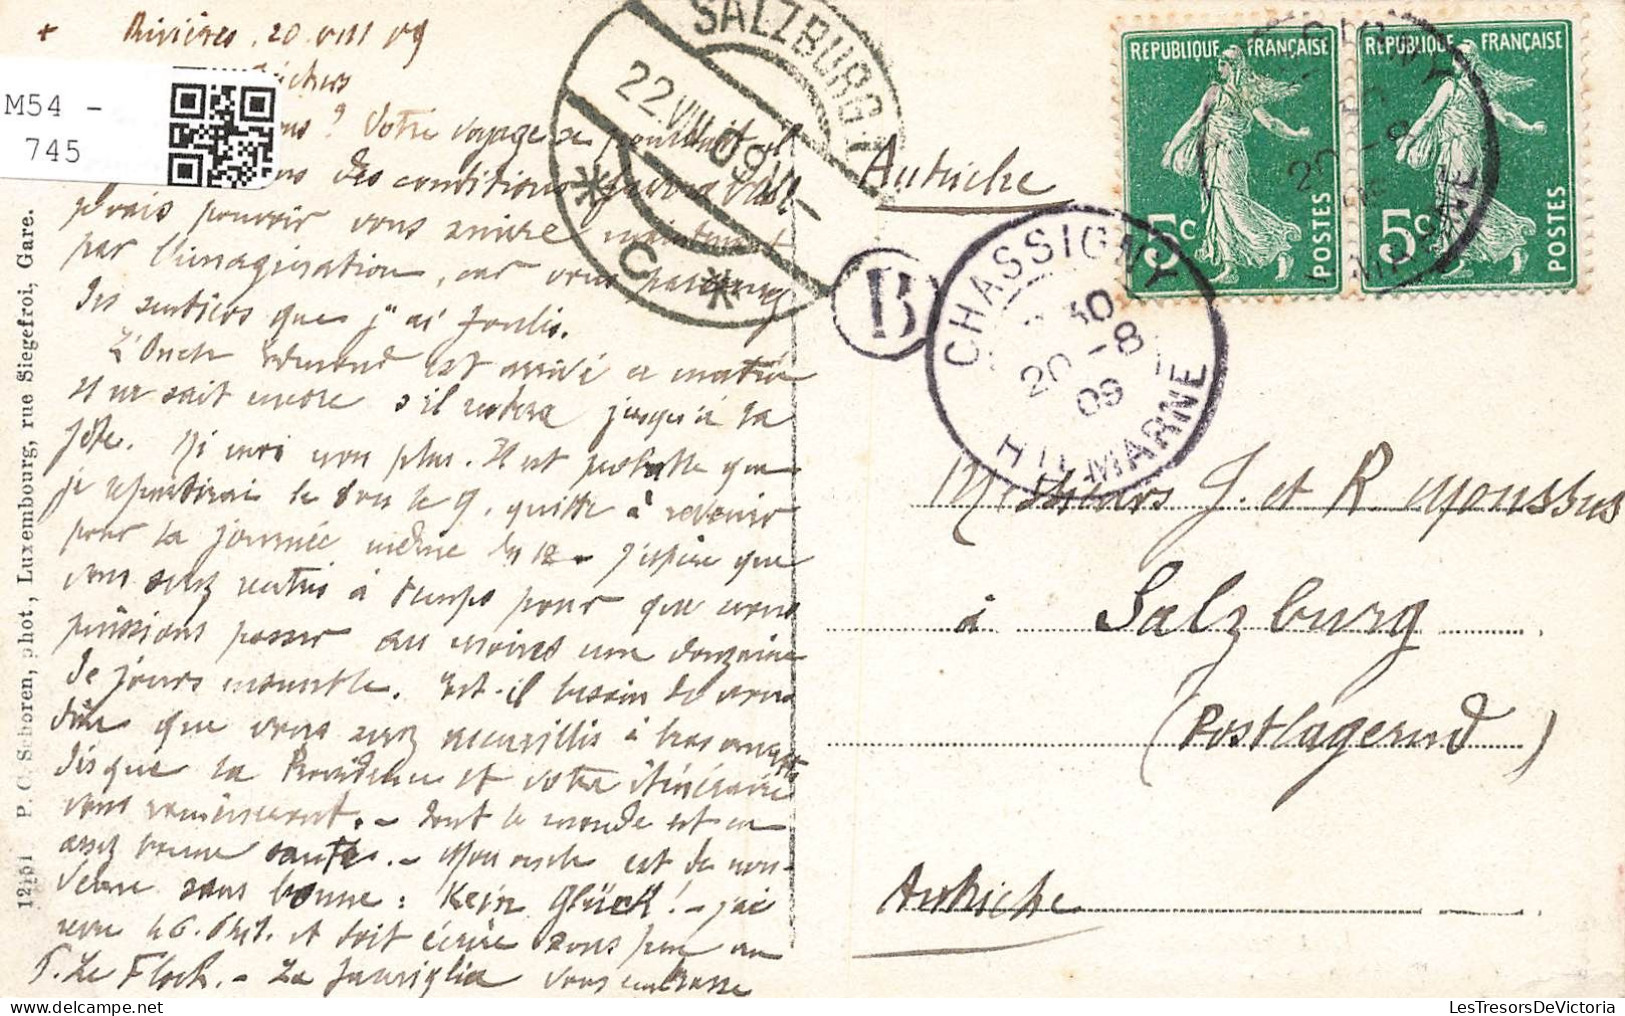 + Rivières, 20 VIII 09
M54 -
745
? Votre voyage se poursuit il
des conditions favorables?
pouvoir vous suivre maintenant
par l'imagination, car vous parcourez
des sentiers que j'ai foulés.
L'Oncle Edmond est arrivé ce matin
Il ne sait encore s'il restera jusqu'à la
fête. Ni moi non plus. Il est probable que
je repartirai le 8 ou le 9, quitte à revenir
pour la journée même du 12 - J'espère que
vous serez rentrés à temps pour que nous
puissions passer au moins une douzaine
de jours ensemble. Est-il besoin de vous
dire que vous serez accueillis à bras ouverts
lorsque la Providence et votre itinéraire
vous ramèneront. - Tout le monde est en
assez bonne santé. - Mon oncle est de nou-
veau sans bonne : Kein Glück! - J'ai
et doit écrire sous peu au
P. Le Floch. - La famiglia vous embrasse
12151 P. C. Schoren, phot., Luxembourg, rue Siegefroi, Gare.
SALZBURG 1
22 VIII 09
* C *
Autriche
B
CHASSIGNY
30
20 - 8
09
HTE MARNE
REPUBLIQUE FRANÇAISE
5c
POSTES
REPUBLIQUE FRANÇAISE
5c
POSTES
Messieurs J. et R. Moussus
à Salzburg
(Postlagernd)
Autriche
LesTresorsDeVictoria.com